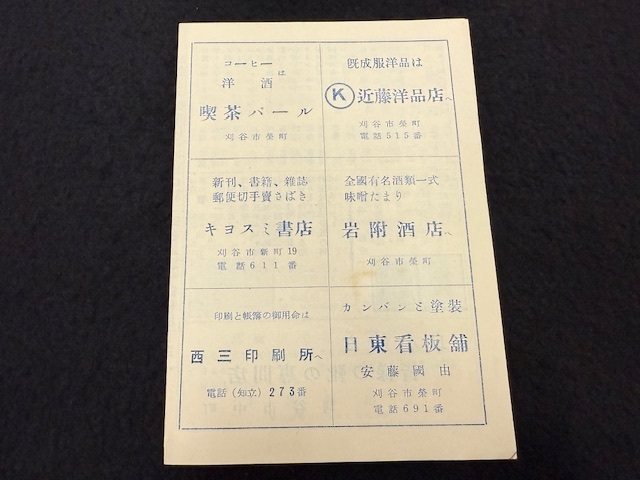 コーヒー
洋酒は
喫茶パール
刈谷市榮町
既成服洋品は
Ⓚ近藤洋品店へ
刈谷市榮町
電話515番
新刊、書籍、雑誌
郵便切手賣さばき
キヨスミ書店
刈谷市新町19
電話611番
全國有名酒類一式
味噌たまり
岩附酒店へ
刈谷市榮町
印刷と帳簿の御用命は
西三印刷所へ
電話(知立)273番
カンバンと塗装
日東看板舗
安藤國由
刈谷市榮町
電話691番